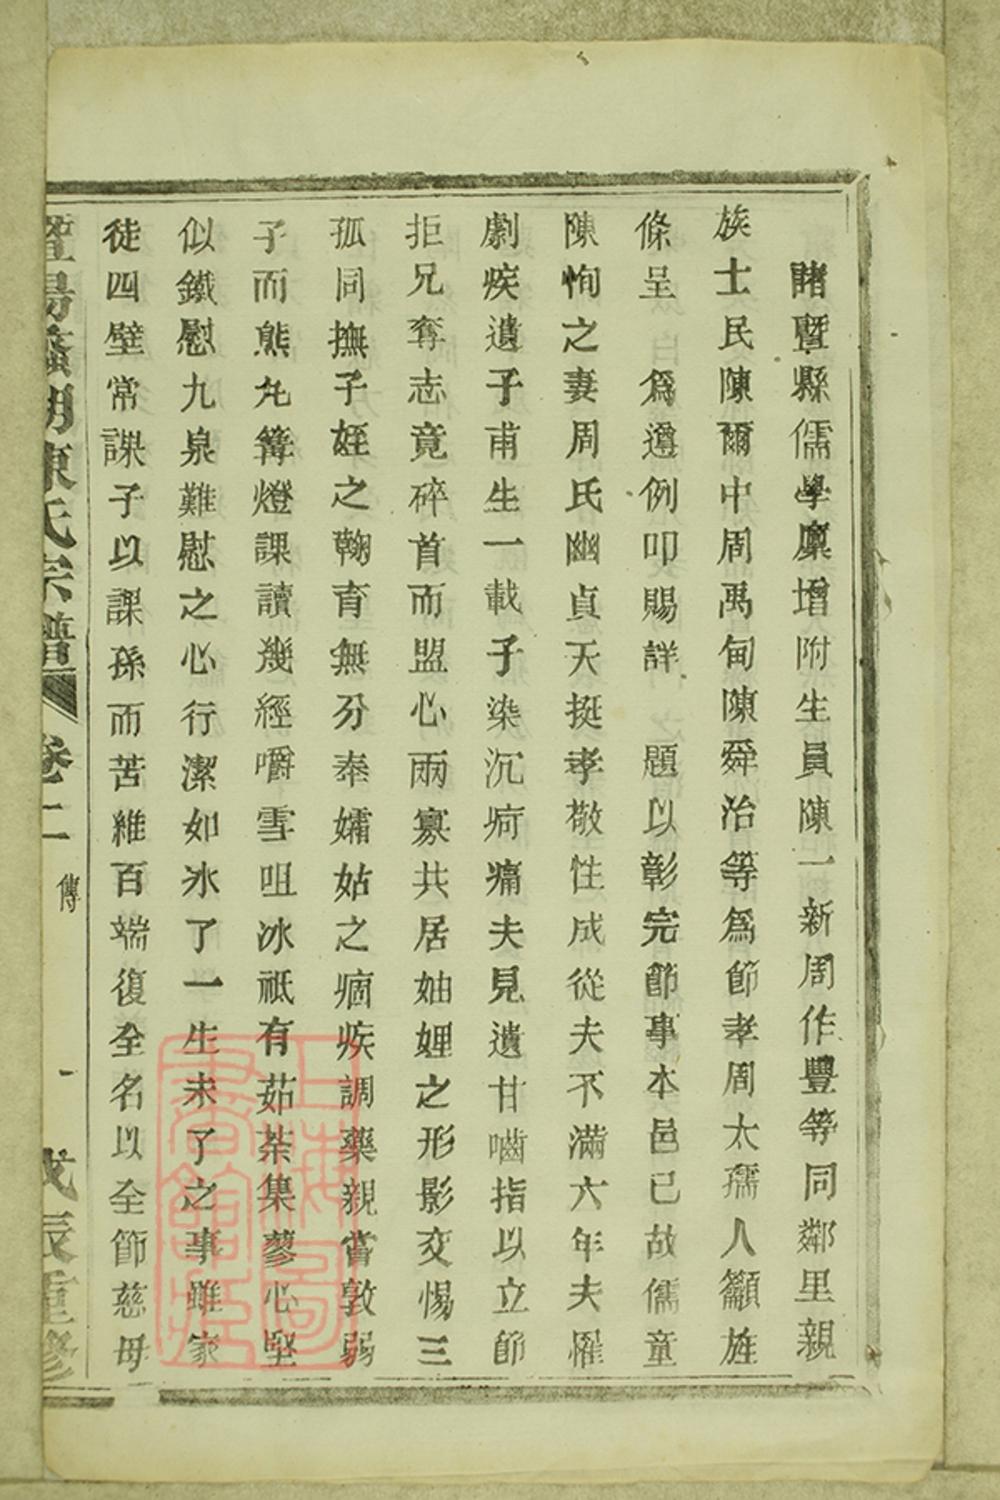 諸暨縣儒學廩增附生員陳一新周作豐等同鄰里親
族士民陳爾中周禹甸陳舜治等爲節孝周太孺人籲旌
條呈 爲遵例叩賜詳 題以彰完節事本邑已故儒童
陳恂之妻周氏幽貞天挺孝敬性成從夫不滿六年夫罹
劇疾遺子甫生一載子染沉疴痛夫見遺甘嚙指以立節
拒兄奪志竟碎首而盟心兩寡共居妯娌之形影交惕三
孤同撫子姪之鞠育無分奉孀姑之痼疾調藥親嘗敦弱
子而熊丸篝燈課讀幾經嚼雪咀冰祗有茹荼集蓼心堅
似鐵慰九泉難慰之心行潔如冰了一生未了之事雖家
徒四壁常課子以課孫而苦維百端復全名以全節慈母
暨陽 湖陳氏宗譜 卷二 傳 一 戊辰重修
上海圖書館藏